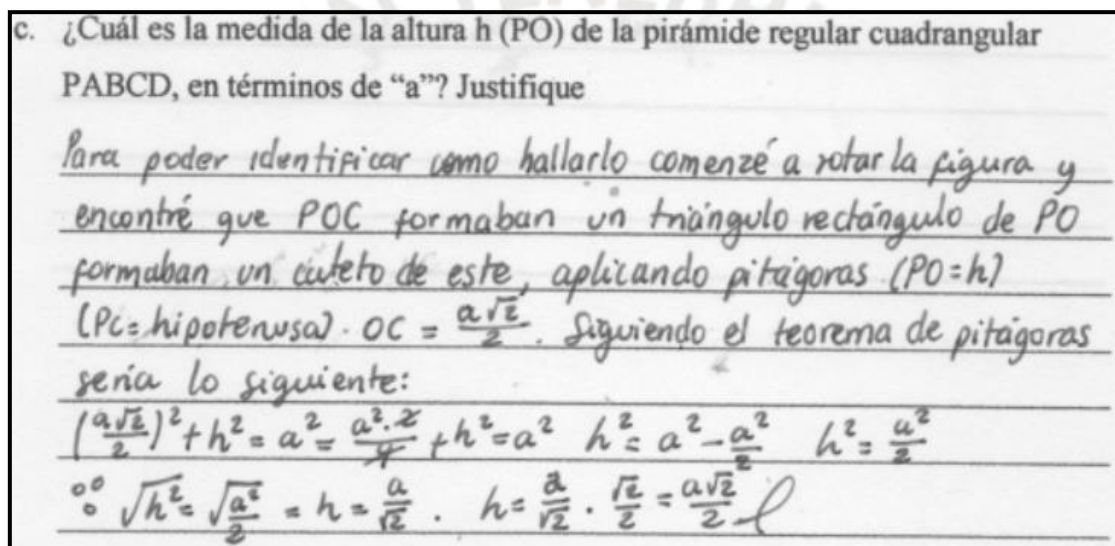 c. ¿Cuál es la medida de la altura h (PO) de la pirámide regular cuadrangular
PABCD, en términos de “a”? Justifique
Para poder identificar como hallarlo comenzé a rotar la figura y
encontré que POC formaban un triángulo rectángulo de PO
formaban un cateto de este, aplicando pitágoras (PO=h)
(PC=hipotenusa). OC = a√2/2. Siguiendo el teorema de pitágoras
seria lo siguiente:
(a√2/2)²+h²=a²= a².2/4 +h²=a² h²= a²-a²/2 h²= a²/2
°°° √h²= √a²/2 = h= a/√2 . h= a/√2 . √2/2 = a√2/2